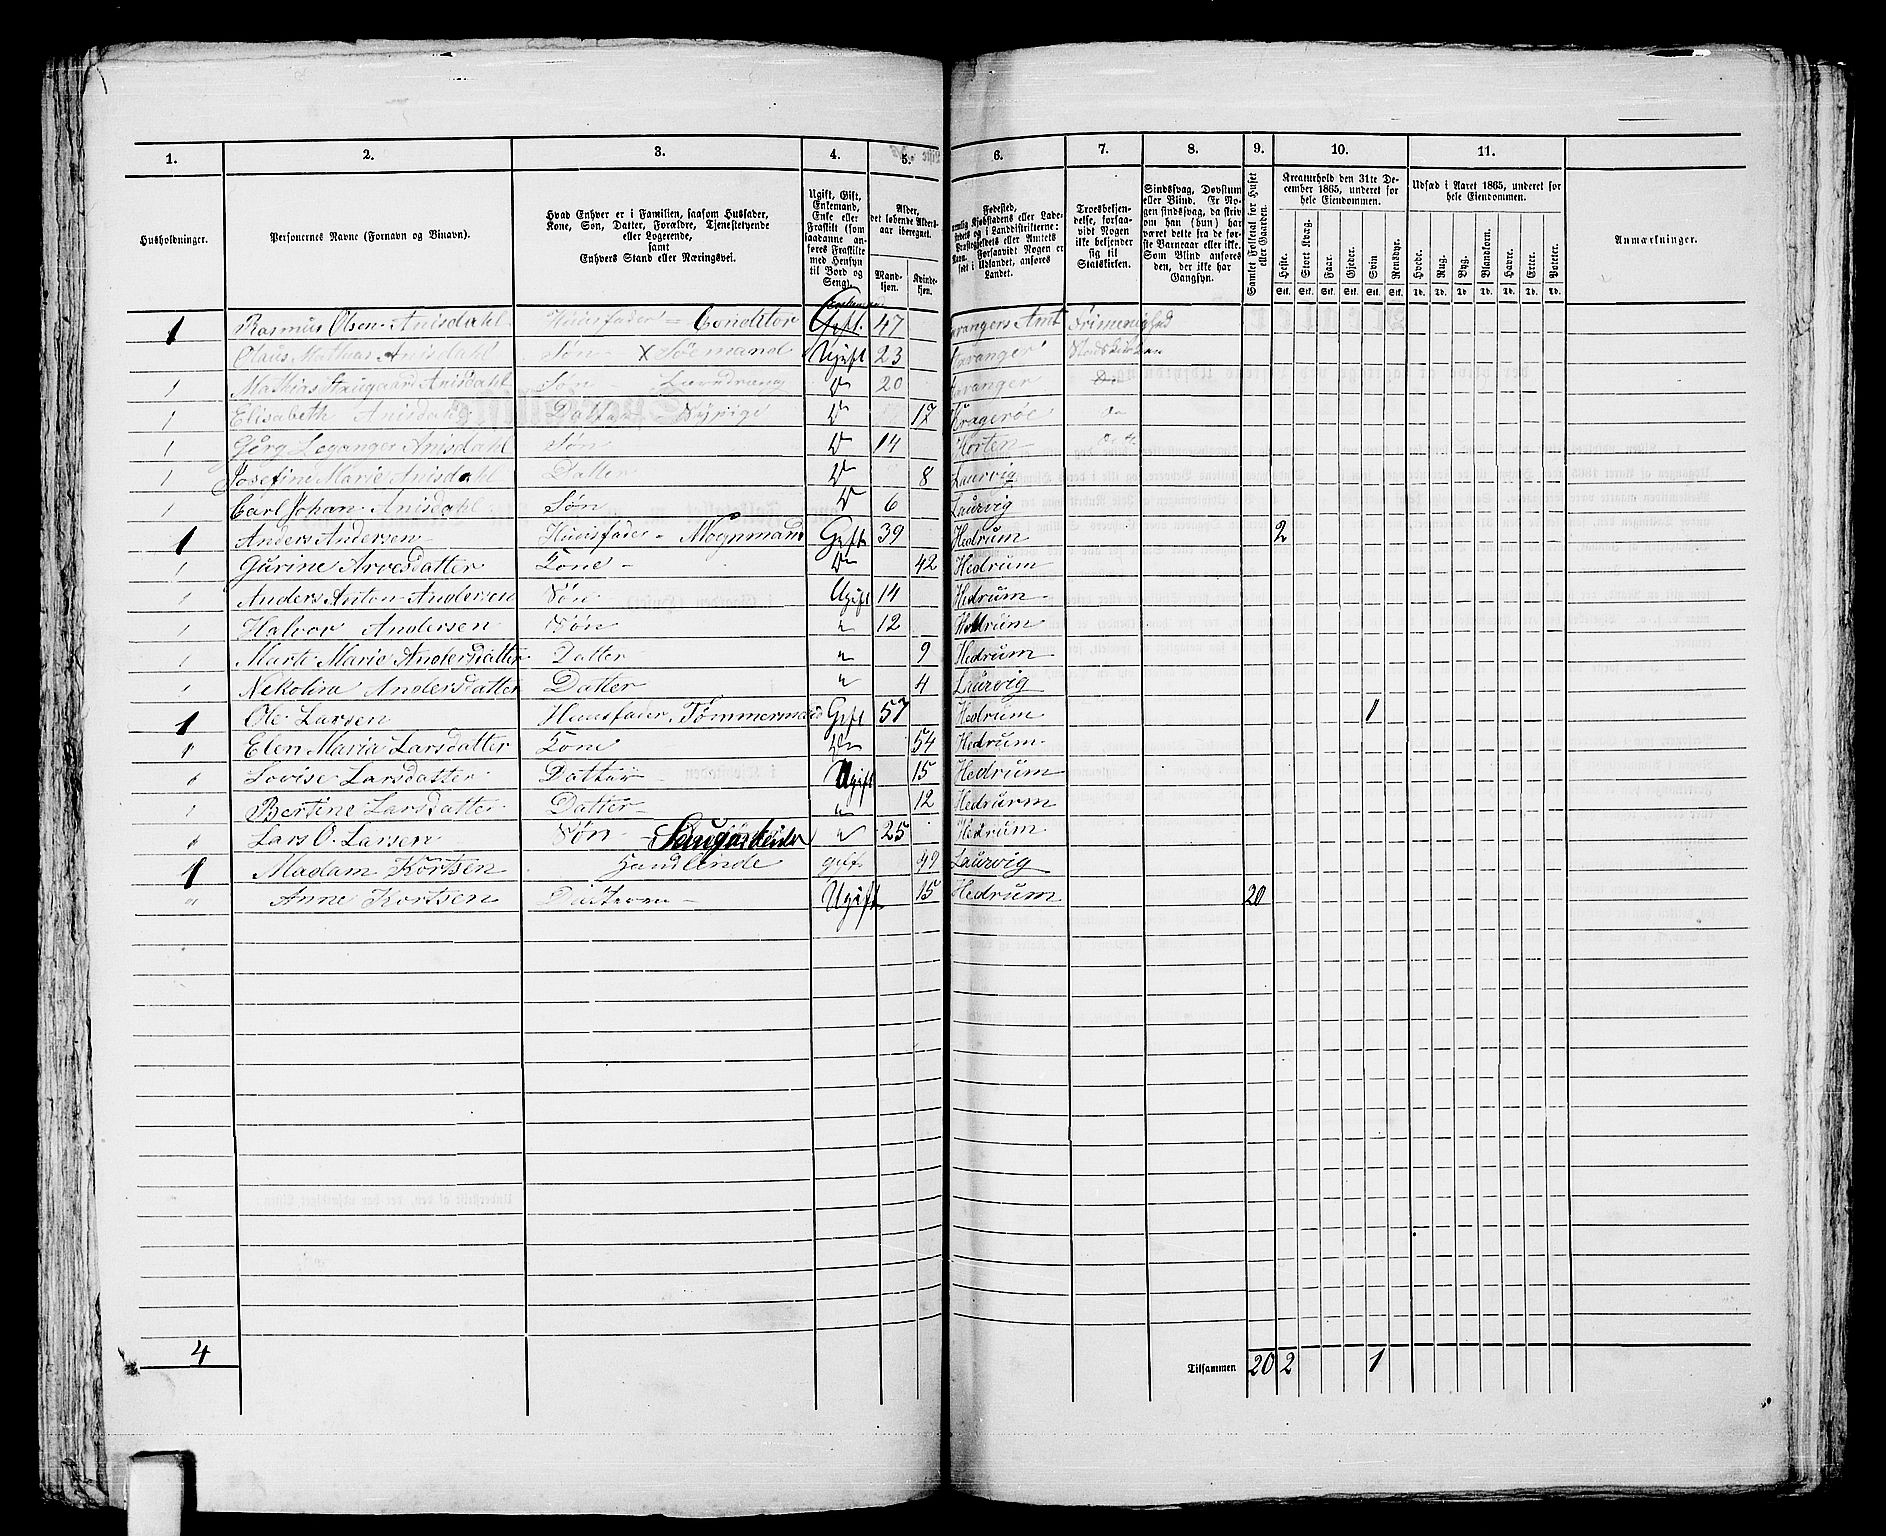 1. 2. 3. 4. 5. 6. 7. 8. 9. 10. 11.
Husholdninger.
Personernes Navne (Fornavn og Binavn).
Hvad Enhver er i Familien, saasom Husfader,
Kone, Søn, Datter, Forældre, Tjenestetyende
eller Logerende,
samt
Enhvers Stand eller Næringsvei.
Ugift, Gift,
Enkemand,
Enke eller
Fraskilt (som
saadanne an-
føres Fraskilte
med Hensyn
til Bord og
Seng).
Alder,
det løbende Alders-
aar iberegnet.
Mand-
kjøn.
Kvinde-
kjøn.
Fødested,
nemlig Kjøbstadens eller Lade-
stedets og i Landdistrikterne:
Præstegjeldets eller Amtets
Navn. Forsaavidt Nogen er
født i Udlandet, anføres
Landet.
Troesbekjen-
delse, forsaa-
vidt Nogen
ikke bekjender
sig til
Statskirken.
Sindssvag, Døvstum
eller Blind. Er No-
gen sindssvag, da skriv
om han (hun) har
været dette fra de før-
ste Barneaar eller ikke.
Som Blind anføres
den, der ikke har
Gangsyn.
Samlet Folketal for Huset
eller Gaarden.
Kreaturhold den 31te De-
cember 1865, underet for
hele Eiendommen.
Heste. Stort Kvæg. Faar. Gjeder. Svin Rensdyr.
Stk. Stk. Stk. Stk. Stk. Stk.
Udsæd i Aaret 1865, underet for
hele Eiendommen.
Hvede. Rug. Byg. Blandkorn. Havre. Erter. Poteter.
Td. Td. Td. Td. Td. Td. Td.
Anmærkninger.
Enkemand
1 Rasmus Olsen Anisdahl Huusfader = Conditor Gift. 47 Stavangers Amt Frimenighed
Olaus Mathias Anisdahl Søn X Søemand Ugift 23 Stavanger Statskirken
1 Mathias Anisdahl Søn Do 20 Stavanger Do
1 Elisabeth Anisdahl Datter Do 17 Kragerøe Do
1 Leganger Anisdahl Søn Do 14 Horten Do
1 Josefine Marie Anisdahl Datter Do 8 Laurvig
1 Carl Johan Anisdahl Søn Do 6 Laurvig
1 Anders Andersen Huusfader = Vognmand Gift 39 Hedrum 2
1 Gurine Arvesdatter Kone Do 42 Hedrum
1 Anders Anton Andersen Søn Ugift 14 Hedrum
1 Halvor Andersen Søn " 12 Hedrum
1 Marte Marie Andersdatter Datter " 9 Hedrum
1 Nekolina Andersdatter Datter " 4 Laurvig
1 Ole Larsen Huusfader, Tømmermand Gift 57 Hedrum 1
" Elen Maria Larsdatter Kone Do 54 Hedrum
Lovise Larsdatter Datter Ugift 15 Hedrum
1 Bertine Larsdatter Datter " 12 Hedrum
Lars O. Larsen Søn Saugarbeider " 25 Hedrum
1 Madam Kortsen Handlende gift 42 Laurvig
" Anne Kortsen Ugift 15 Hedrum 20
4 Tilsammen 20 2 1